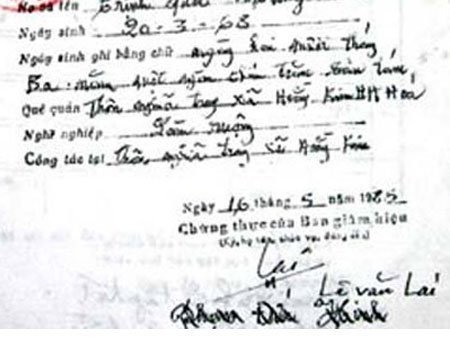 Họ và tên Trịnh
Ngày sinh 20-3-68
Ngày sinh ghi bằng chữ ngày hai mươi tháng
Ba năm một ngàn chín trăm sáu tám
Quê quán Thôn nghĩa trang xã Hoằng Kim HH Hóa
Nghề nghiệp Làm ruộng
Công tác tại Thôn nghĩa trang xã Hoằng Kim
Ngày 16 tháng 5 năm 1985
Chứng thực của Ban giám hiệu
(Ký, họ tên, chức vụ, đóng dấu)
Lai
Lê văn Lai